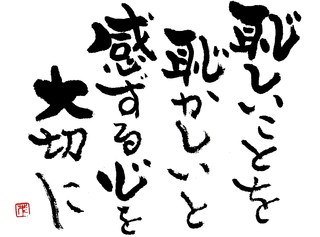 恥しいことを
恥かしいと
感ずる心を
大切に